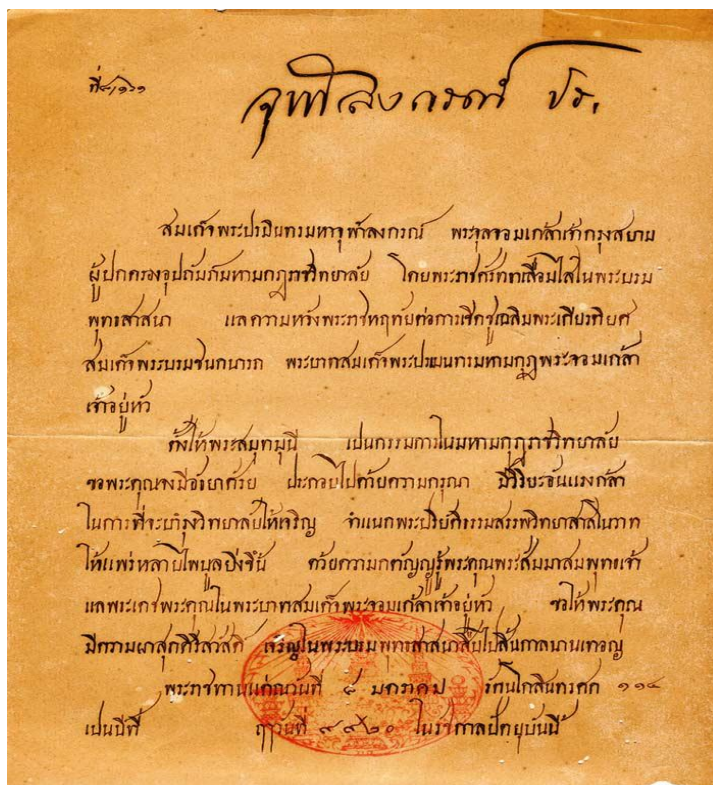 ที่ ๔/๑๖๑
จุฬาลงกรณ์ ปร.
สมเด็จพระปรมินทรมหาจุฬาลงกรณ์ พระจุลจอมเกล้าเจ้ากรุงสยาม
ผู้ปกครองอุปถัมภ์มหามกุฎราชวิทยาลัย โดยพระราชศรัทธาเลื่อมใสในพระบรม
พุทธสาสนา แลความหวังพระราชหฤทัยต่อการเชิดชูเฉลิมพระเกียรติยศ
สมเด็จพระบรมชนกนารถ พระบาทสมเด็จพระปรเมนทรมหามกุฏพระจอมเกล้า
เจ้าอยู่หัว
ตั้งให้พระสมุทมุนี เป็นกรรมการในมหามกุฎราชวิทยาลัย
ขอพระคุณจงมีอัธยาศรัย ประกอบไปด้วยความกรุณา มีวิริยะอันแรงกล้า
ในการที่จะบำรุงวิทยาลัยให้เจริญ จำแนกพระปริยัติธรรมสรรพวิทยาสาสโนวาท
ให้แพร่หลายไพบูลยิ่งขึ้น ด้วยความกตัญญูรู้พระคุณพระสัมมาสมพุทธเจ้า
แลพระเดชพระคุณในพระบาทสมเด็จพระจอมเกล้าเจ้าอยู่หัว ขอให้พระคุณ
มีความผาสุกศิริสวัสดิ์ เจริญในพระบรมพุทธสาสนาสืบไปสิ้นกาลนานเทอญ
พระราชทานแต่ณวันที่ ๔ มกราคม รัตนโกสินทรศก ๑๑๔
เป็นปีที่ ฤๅวันที่ ๙๙๒๐ ในราชกาลปัตยุบันนี้